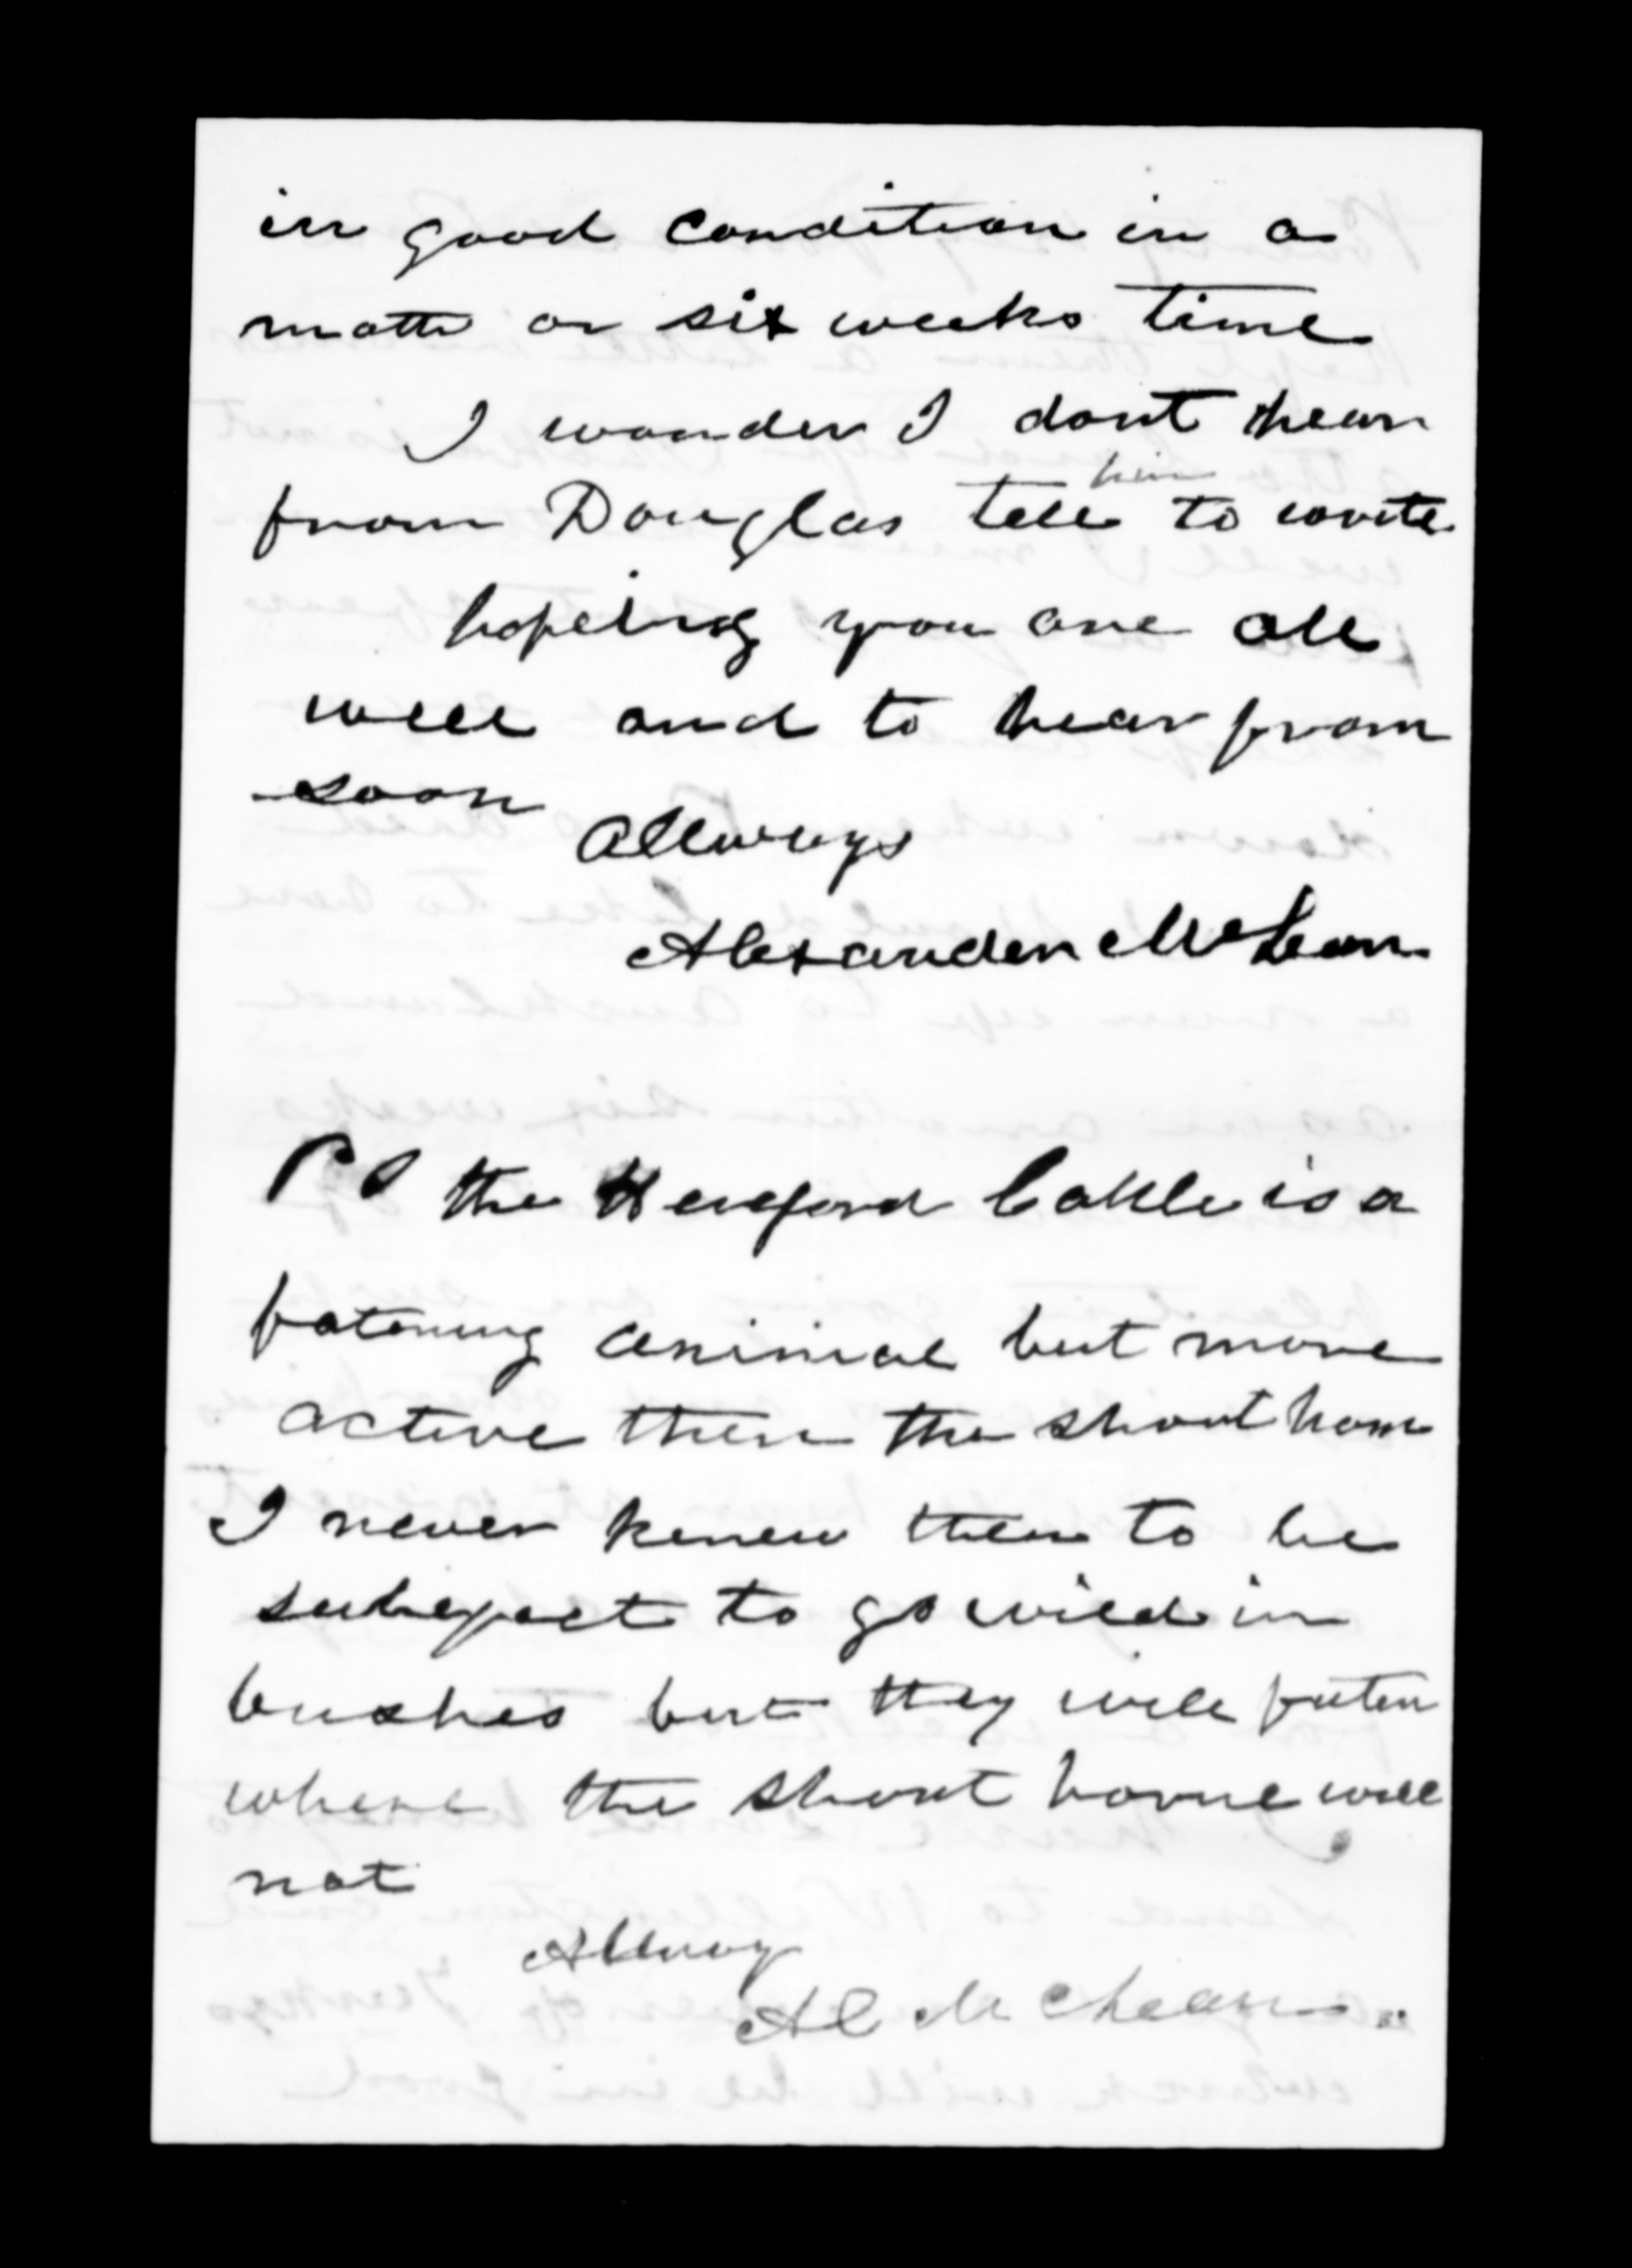 in good condition in a
matter or six weeks time
I wonder I dont hear
from Douglas tell him to write
hopeing you are all
well and to hear from
soon
Allways
Alexander McLean
PS the Hereford Cattle is a
fatening animal but more
active then the short horn
I never knew them to be
subject to go wild in
bushes but they will faten
where the short horne will
not
Allway
Al McLean